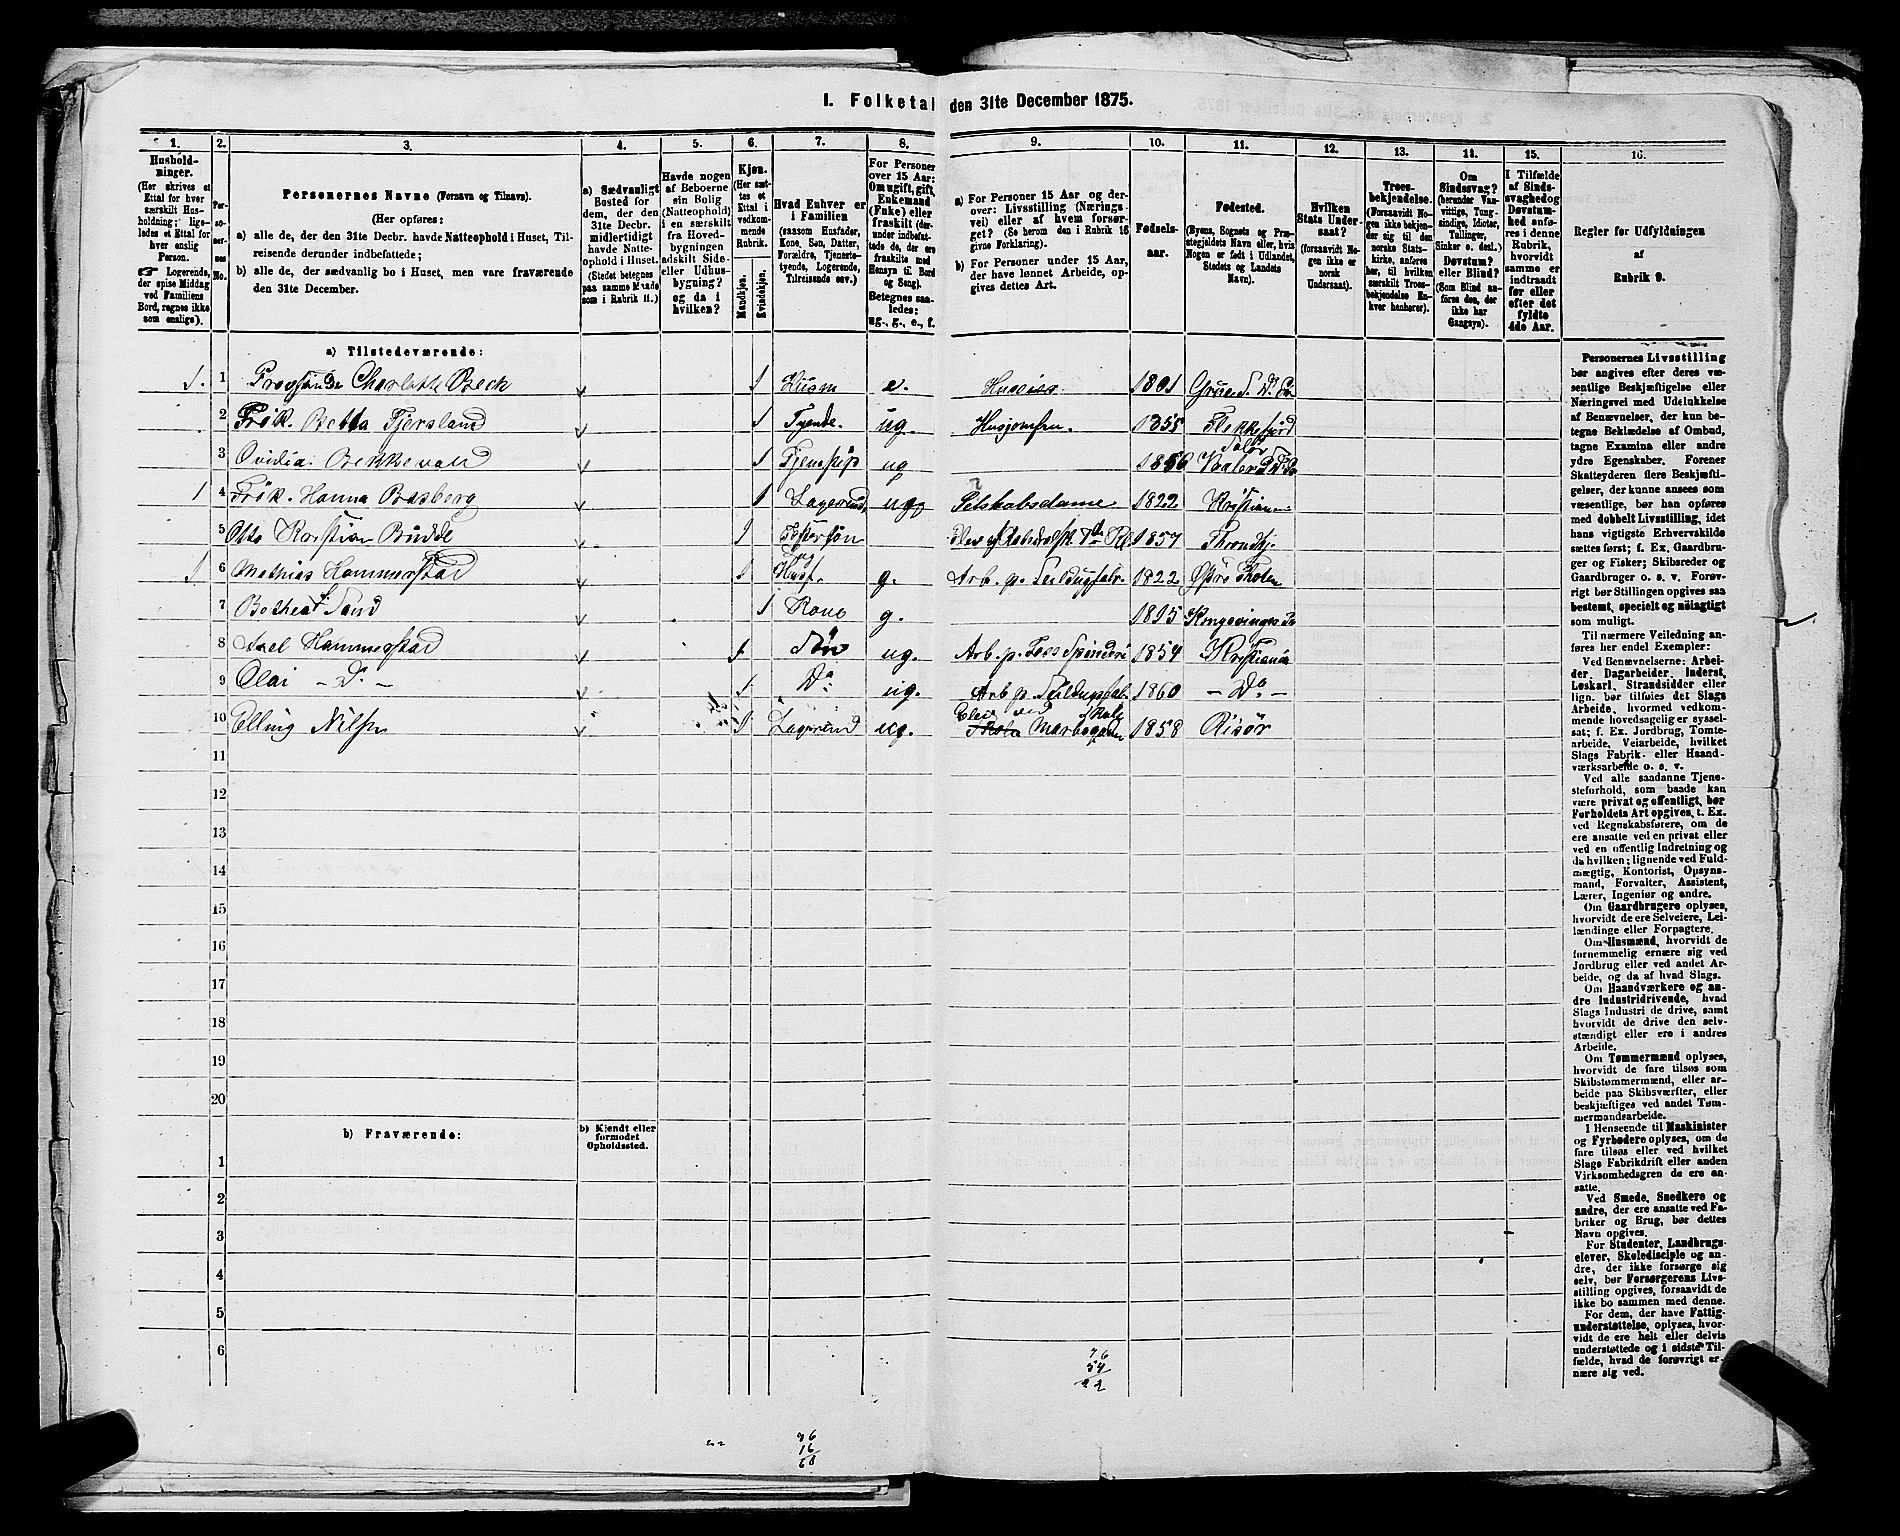 I. Folketal den 31te December 1875.
1. 2. 3. 4. 5. 6. 7. 8. 9. 10. 11. 12. 13. 14. 15. 16.
Husholdninger.
(Her skrives et
Ettal for hver
særskilt Husholdning;
ligeledes et Ettal for
hver enslig
Person.
Logerende,
der spise Middag
ved Familiens
Bord, regnes ikke
som enslige).
Personernes No.
Personernes Navne (Fornavn og Tilnavn).
(Her opføres:
a) alle de, der den 31te Decbr. havde Natteophold i Huset, Tilreisende
derunder indbefattede;
b) alle de, der sædvanlig bo i Huset, men vare fraværende
den 31te December.
a) Sædvanligt
Bosted for
dem, der den
31te Decbr.
midlertidigt
havde Natteophold
i Huset.
(Stedet betegnes
paa samme Maade
som i Rubrik 11.)
Havde nogen
af Beboerne
sin Bolig
(Natteophold)
i en særskilt
fra Hovedbygningen
adskilt Side-
eller Udhusbygning?
og da i
hvilken?
Kjøn.
(Her sættes
et
Ettal i
vedkommende
Rubrik.
Mandkjøn.
Kvindekjøn.
Hvad Enhver er
i Familien
(saasom Husfader,
Kone, Søn, Datter,
Forældre, Tjenestetyende,
Logerende,
Tilreisende osv.)
For Personer
over 15 Aar:
Om ugift, gift,
Enkemand
(Enke) eller
fraskilt (derunder
indbefattede
de, der ere
fraskilte med
Hensyn til Bord
og Seng).
Betegnes saaledes:
ug., g., e., f.
a) For Personer 15 Aar og derover:
Livsstilling (Næringsvei)
eller af hvem forsørget?
(Se herom den i Rubrik 16
givne Forklaring).
b) For Personer under 15 Aar,
der have lønnet Arbeide, opgives
dettes Art.
Fødselsaar.
Fødested.
(Byens, Sognets og Præstegjeldets
Navn eller, hvis
Nogen er født i Udlandet,
Stedets og Landets
Navn).
Hvilken
Stats Undersaat?
(forsaavidt Nogen
ikke er
norsk
Undersaat).
Troesbekjendelse.
(Forsaavidt Nogen
ikke bekjender
sig til den
norske Statskirke,
anføres
her, til hvilken
særskilt Troesbekjendelse
Enhver
henhører).
Om
Sindssvag?
(herunder Vanvittige,
Tungsindige,
Idioter,
Tullinger,
Sinker o. desl.)
Døvstum?
eller Blind?
(Som Blind anføres
den, der
ikke har
Gangsyn).
I Tilfælde
af Sindssvaghed
og
Døvstumhed
anføres
i denne
Rubrik,
hvorvidt
samme er
indtraadt
før eller
efter det
fyldte
4de Aar.
Regler før Udfyldningen
af
Rubrik 9.
a) Tilstedeværende:
1. 1 Charlotte Beck 1 e. 1801
2 Frøk. Betta Fjersland 1 Tyende. ug. Husjomfru. 1855 Flekkefjord
3 Ovidia 1 ug 1856
1 4 Frøk. Hanna 1 Logerende ug. Selskabsdame 1822 Kristiania
5 Otto Kristian Budde 1 1857 Throndhj.
1 6 Mathias Hammerstad 1 Husf. g. Arb. p. Seildugfabr. 1822 Østre Thoten
7 Bothea 1 Kone g. 1815 Kongsvinger
8 Axel Hammerstad 1 Søn ug. Arb. p. Spinderi 1854 Kristiania
9 Olai — Do — 1 Do ug. Arb p. Seildugsfab. 1860 — Do —
10 Elling Nilsen 1 Logerend ug. Elev ved 1858 Risør
11
12
13
14
15
16
17
18
19
20
b) Fraværende:
b) Kjendt eller
formodet
Opholdssted.
1
2
3
4
5
6
76
54
22
76
16
60
Personernes Livsstilling
bør angives efter deres væsentlige
Beskjæftigelse eller
Næringsvei med Udelukkelse
af Benævnelser, der kun betegne
Beklædelse af Ombud,
tagne Examina eller andre
ydre Egenskaber. Forener
Skatteyderen flere Beskjæftigelser,
der kunne ansees som
væsentlige, bør han opføres
med dobbelt Livsstilling, idet
hans vigtigste Erhvervskilde
sættes først; f. Ex. Gaardbruger
og Fisker; Skibsreder og
Gaardbruger o. s. v. Forøvrigt
bør Stillingen opgives saa
bestemt, specielt og nöiagtigt
som muligt.
Til nærmere Veiledning anføres
her endel Exempler:
Ved Benævnelserne: Arbeider,
Dagarbeider, Inderst,
Løskarl, Strandsidder eller
lign. bør tilføies det Slags
Arbeide, hvormed vedkommende
hovedsagelig er sysselsat;
f. Ex. Jordbrug, Tomtearbeide,
Veiarbeide, hvilket
Slags Fabrik- eller Haandværksarbeide
o. s. v.
Ved alle saadanne Tjenesteforhold,
som baade kan
være privat og offentligt, bør
Forholdets Art opgives, t. Ex.
ved Regnskabsførere, om de
ere ansatte ved en privat eller
ved en offentlig Indretning og
da hvilken; lignende ved Fuldmægtig,
Kontorist, Opsynsmand,
Forvalter, Assistent,
Lærer, Ingeniør og andre.
Om Gaardbrugere oplyses,
hvorvidt de ere Selveiere, Leilændinge
eller Forpagtere.
Om Husmænd, hvorvidt de
fornemmelig ernære sig ved
Jordbrug eller ved andet Arbeide,
og da af hvad Slags.
Om Haandværkere og andre
Industridrivende, hvad
Slags Industri de drive, samt
hvorvidt de drive den selvstændigt
eller ere i andres
Arbeide.
Om Tømmermænd oplyses,
hvorvidt de fare tilsøs som
Skibstømmermænd, eller arbeide
paa Skibsværfter, eller
beskjæftiges ved andet Tømmermandsarbeide.
I Henseende til Maskinister
og Fyrbødere oplyses, om de
fare tilsøs eller ved hvilket
Slags Fabrikdrift eller anden
Virksomhedsgren de ere ansatte.
Ved Smede, Snedkere og
andre, der ere ansatte ved Fabriker
og Brug, bør dettes
Navn opgives.
For Studenter, Landbrugselever,
Skoledisciple og andre,
der ikke forsørge sig
selv, bør Forsørgerens Livsstilling
opgives, forsaavidt de
ikke bo sammen med denne.
For dem, der have Fattigunderstøttelse,
oplyses, hvorvidt
de ere helt eller delvis
understøttede og i sidste Tilfælde,
hvad de forøvrigt ernære
sig ved.